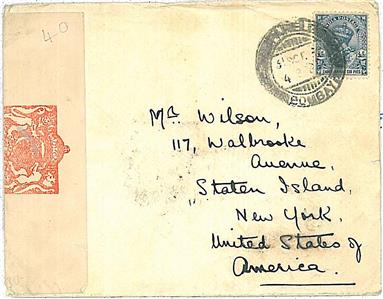 40
BOMBAY
Mr Wilson,
117, Walbrooke
Avenue,
Staten Island,
New York.
United States of
America.